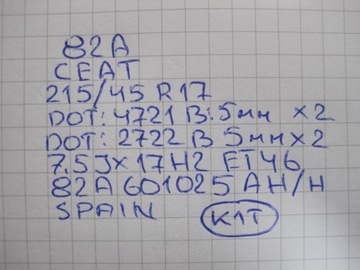 82A
CEAT
215/45 R17
DOT: 4721 B: 5мм x2
DOT: 2722 B 5ммx2
7.5Jx17H2 ET46
82A601025 AH/H
SPAIN K1T